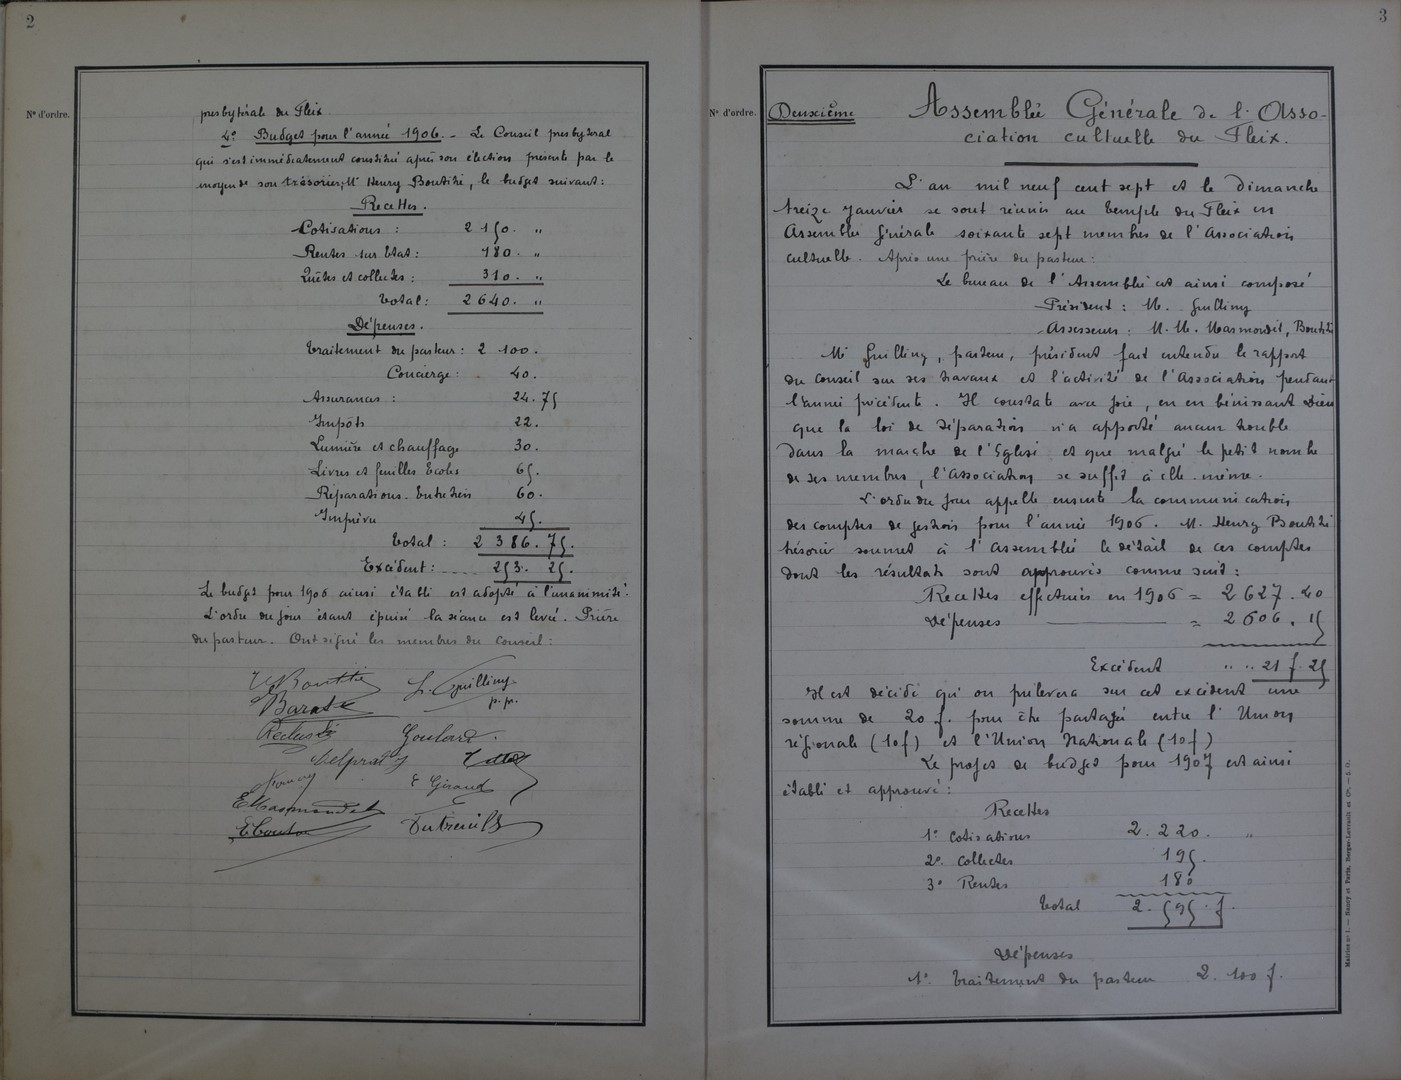 2
N° d'ordre.
presbytérale du Fleix
4° Budget pour l'année 1906. - Le Conseil presbytéral
qui s'est immédiatement constitué après son élection présente par le
moyen de son trésorier, Mr Henry Boutihé, le budget suivant :
Recettes.
Cotisations : 2150. "
Rentes sur Etat : 180. "
Quêtes et collectes : 310. "
Total : 2640. "
Dépenses.
Traitement du pasteur : 2 100.
Concierge : 40.
Assurances : 24.75
Impôts 22.
Lumière et chauffage 30.
Livres et feuilles Ecoles 65.
Réparations. Entretien 60.
Imprévu 45.
Total : 2 386.75.
Excédent : 253. 25.
Le budget pour 1906 ainsi établi est adopté à l'unanimité.
L'ordre du jour étant épuisé la séance est levée. Prière
du pasteur. Ont signé les membres du Conseil :
L. Guilliny
p. pr.
Barate
Goulard.
Delprat
E Giraud
E Marmondeil
Dutreuilh
3
N° d'ordre.
Deuxième Assemblée Générale de l'Asso-
ciation cultuelle du Fleix.
L'an mil neuf cent sept et le Dimanche
treize Janvier se sont réunis au temple du Fleix en
Assemblée générale soixante sept membres de l'Association
cultuelle. Après une prière du pasteur :
Le bureau de l'Assemblée est ainsi composé
Président : M. Guilliny
Assesseurs : M. M. Marmondeil, Boutihé
Mr Guilliny, pasteur, président fait entendre le rapport
du Conseil sur ses travaux et l'activité de l'Association pendant
l'année précédente. Il constate avec joie, en en bénissant Dieu
que la loi de Séparation n'a apporté aucun trouble
dans la marche de l'Eglise et que malgré le petit nombre
de ses membres, l'Association se suffit à elle-même.
L'ordre du jour appelle ensuite la communication
des comptes de gestion pour l'année 1906. M. Henry Boutihé
trésorier soumet à l'Assemblée le détail de ces comptes
dont les résultats sont approuvés comme suit :
Recettes effectuées en 1906 = 2 627.40
Dépenses = 2 606.15
Excédent " " 21 f. 25
Il est décidé qu'on prélevera sur cet excédent une
somme de 20 f. pour être partagée entre l'Union
régionale (10f) et l'Union Nationale (10f)
Le projet de budget pour 1907 est ainsi
établi et approuvé :
Recettes
1° Cotisations 2.220. "
2° Collectes 195.
3° Rentes 180
Total 2.595. f.
Dépenses
1° Traitement du pasteur 2.100 f.
Matrice n° 1. — Nancy et Paris, Berger-Levrault et Cie. — J. O.